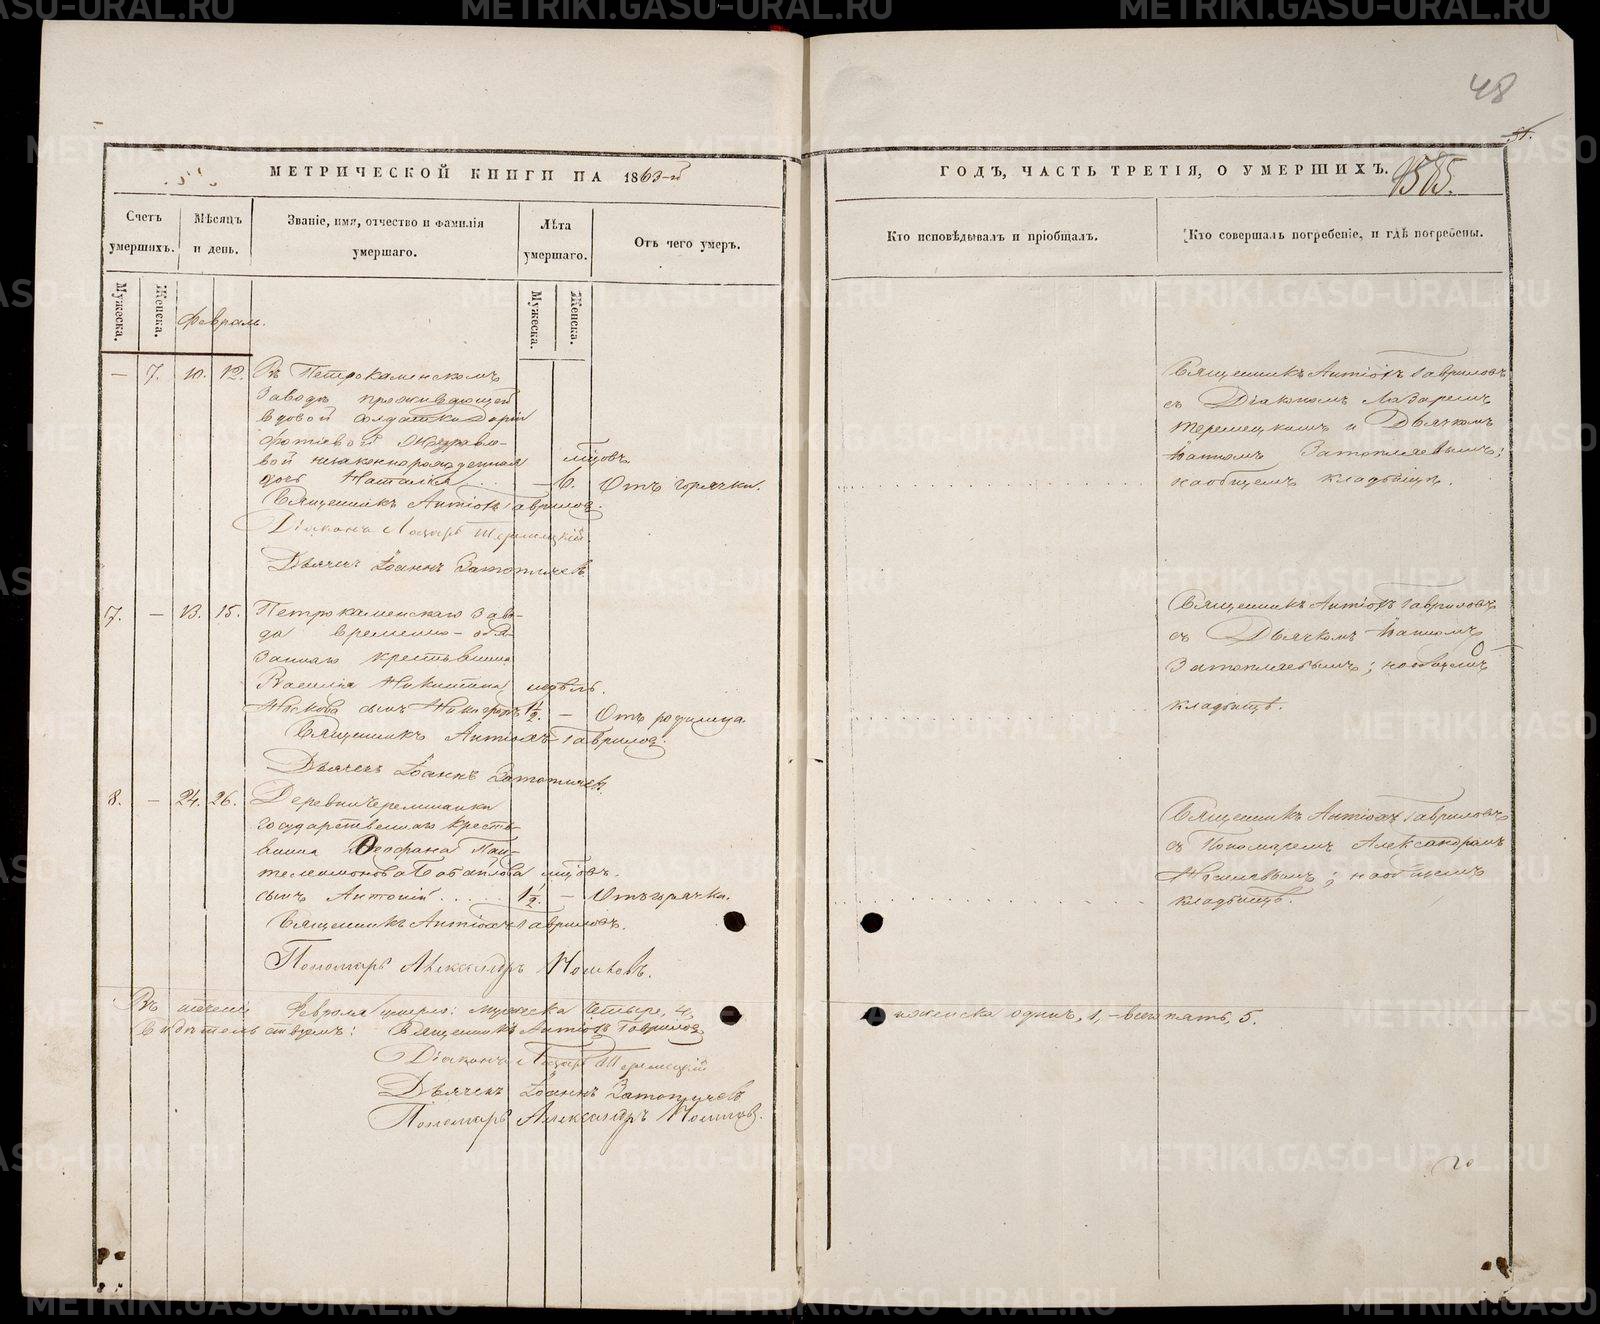 48
51.
МЕТРИЧЕСКОЙ КНИГИ НА 1863-й
ГОДЪ, ЧАСТЬ ТРЕТІЯ, О УМЕРШИХЪ.
Счетъ умершихъ.
Мѣсяцъ и день.
Званіе, имя, отчество и фамилія умершаго.
Лѣта умершаго.
Отъ чего умеръ.
Кто исповѣдывалъ и пріобщалъ.
Кто совершалъ погребеніе, и гдѣ погребены.
Мужеска.
Женска.
Февраль.
Мужеска.
Женска.
— 7. 10. 12. Въ Петрокаменскомъ
Заводѣ проживающей
вдовой солдатки Даріи
Фотіевой Журавле-
вой незаконнорожденная мѣсцовъ
дочь Наталія — 6. Отъ горячки.
Священникъ Антіохъ Гавриловъ.
Діаконъ Лазарь
Дьячекъ Іоаннъ Затопляевъ
Священникъ Антіохъ Гавриловъ
съ Діакономъ Лазаремъ
и Дьячкомъ
Іоанномъ Затопляевымъ;
на общемъ кладбищѣ.
7. — 13. 15. Петрокаменскаго Заво-
да временно-обя-
заннаго крестьянина
Василія Никитина недѣль.
сынъ Никифоръ 1½. — Отъ родимца.
Священникъ Антіохъ Гавриловъ
Дьячекъ Іоаннъ Затопляевъ.
Священникъ Антіохъ Гавриловъ
съ Дьячкомъ Іоанномъ
Затопляевымъ; на общемъ
кладбищѣ.
8. — 24. 26. Деревни Черемшанки
государственнаго кресть-
янина Ѳеофана Пан-
телеимонова мѣсцовъ.
сынъ Антоній 1½. — Отъ горячки.
Священникъ Антіохъ Гавриловъ.
Пономарь Александръ
Священникъ Антіохъ Гавриловъ
съ Пономаремъ Александромъ
на общемъ
кладбищѣ.
Въ Февраля умерло: мужеска четыре, 4,
женска одинъ, 1, — всего пять, 5.
Священникъ Антіохъ Гавриловъ
Діаконъ Лазарь
Дьячекъ Іоаннъ Затопляевъ
Пономарь Александръ
METRIKI.GASO-URAL.RU